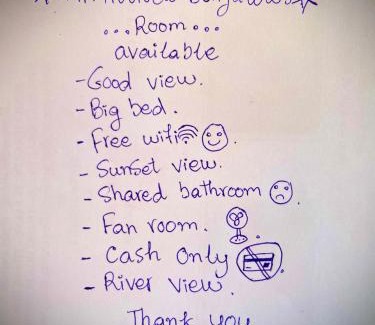 ...Room...
available
- Good view.
- Big bed.
- Free wifi
- Sunset view.
- Shared bathroom
- Fan room.
- Cash Only
- River view.
Thank you